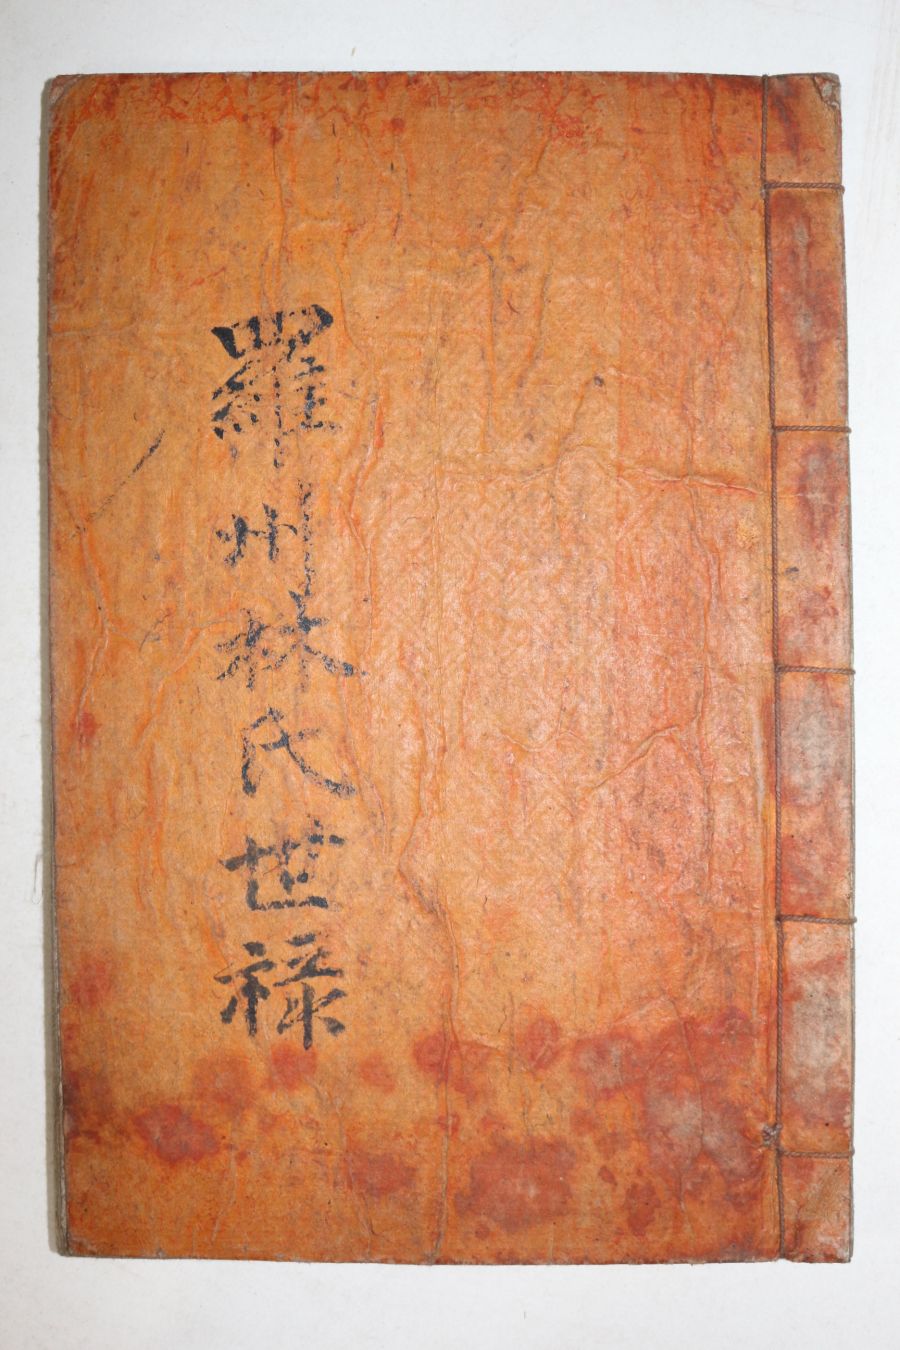 羅州林氏世禄